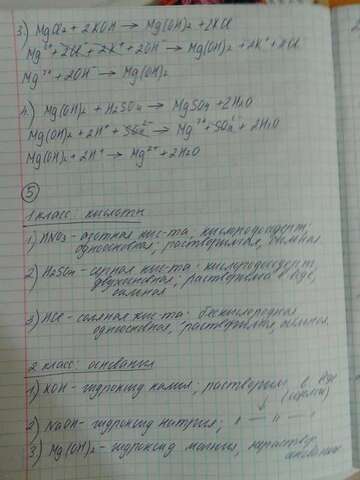 3) MgCl₂ + 2KOH → Mg(OH)₂ + 2KCl
Mg²⁺ + 2Cl⁻ + 2K⁺ + 2OH⁻ → Mg(OH)₂ + 2K⁺ + 2Cl⁻
Mg²⁺ + 2OH⁻ → Mg(OH)₂
4) Mg(OH)₂ + H₂SO₄ → MgSO₄ + 2H₂O
Mg(OH)₂ + 2H⁺ + SO₄²⁻ → Mg²⁺ + SO₄²⁻ + 2H₂O
Mg(OH)₂ + 2H⁺ → Mg²⁺ + 2H₂O
5
1 класс: кислоты
1) HNO₃ - азотная кис-та, кислородсодерж,
одноосновная, растворимая, сильная.
2) H₂SO₄ - серная кис-та: кислородсодерж,
двухосновная; растворима в воде,
сильная
3) HCl - соляная кис-та: бескислородная
одноосновная, растворимая, сильная.
2 класс: основания
1) KOH - гидроксид калия, растворим в воде
(щелочь)
2) NaOH - гидроксид натрия; —〃—
3) Mg(OH)₂ - гидроксид магния, нераствор.
основание